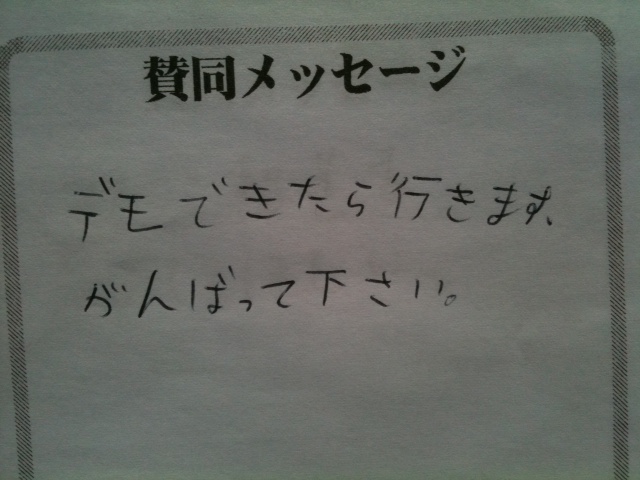 賛同メッセージ
デモできたら行きます、
がんばって下さい。